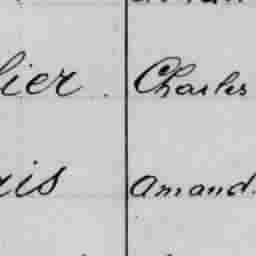 lier. Charles
ris Amand.